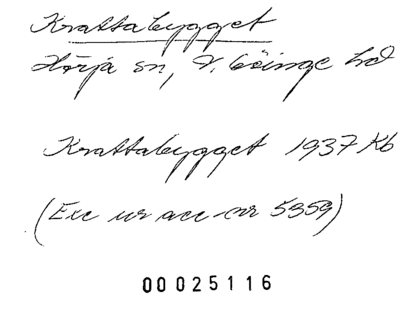 Krattabygget
Hörja sn, V. Göinge hd
Krattabygget 1937 Kb
(Exc ur acc nr 5359)
00025116